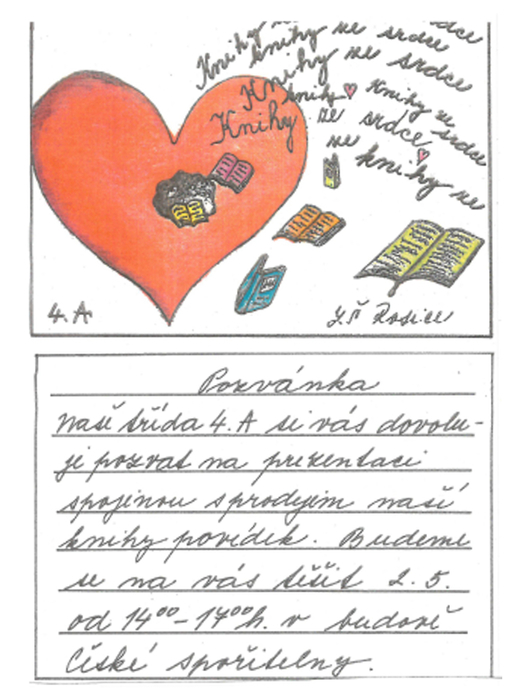 Knihy ze srdce
knihy ze srdce
Knihy ze srdce
knihy ze srdce
Knihy ze srdce
Knihy ze knihy ze
4. A
ZŠ Rosice
Pozvánka
Naše třída 4. A si vás dovolu-
je pozvat na prezentaci
spojenou s prodejem naší
knihy povídek. Budeme
se na vás těšit 2. 5.
od 14⁰⁰-17⁰⁰h. v budově
České spořitelny.